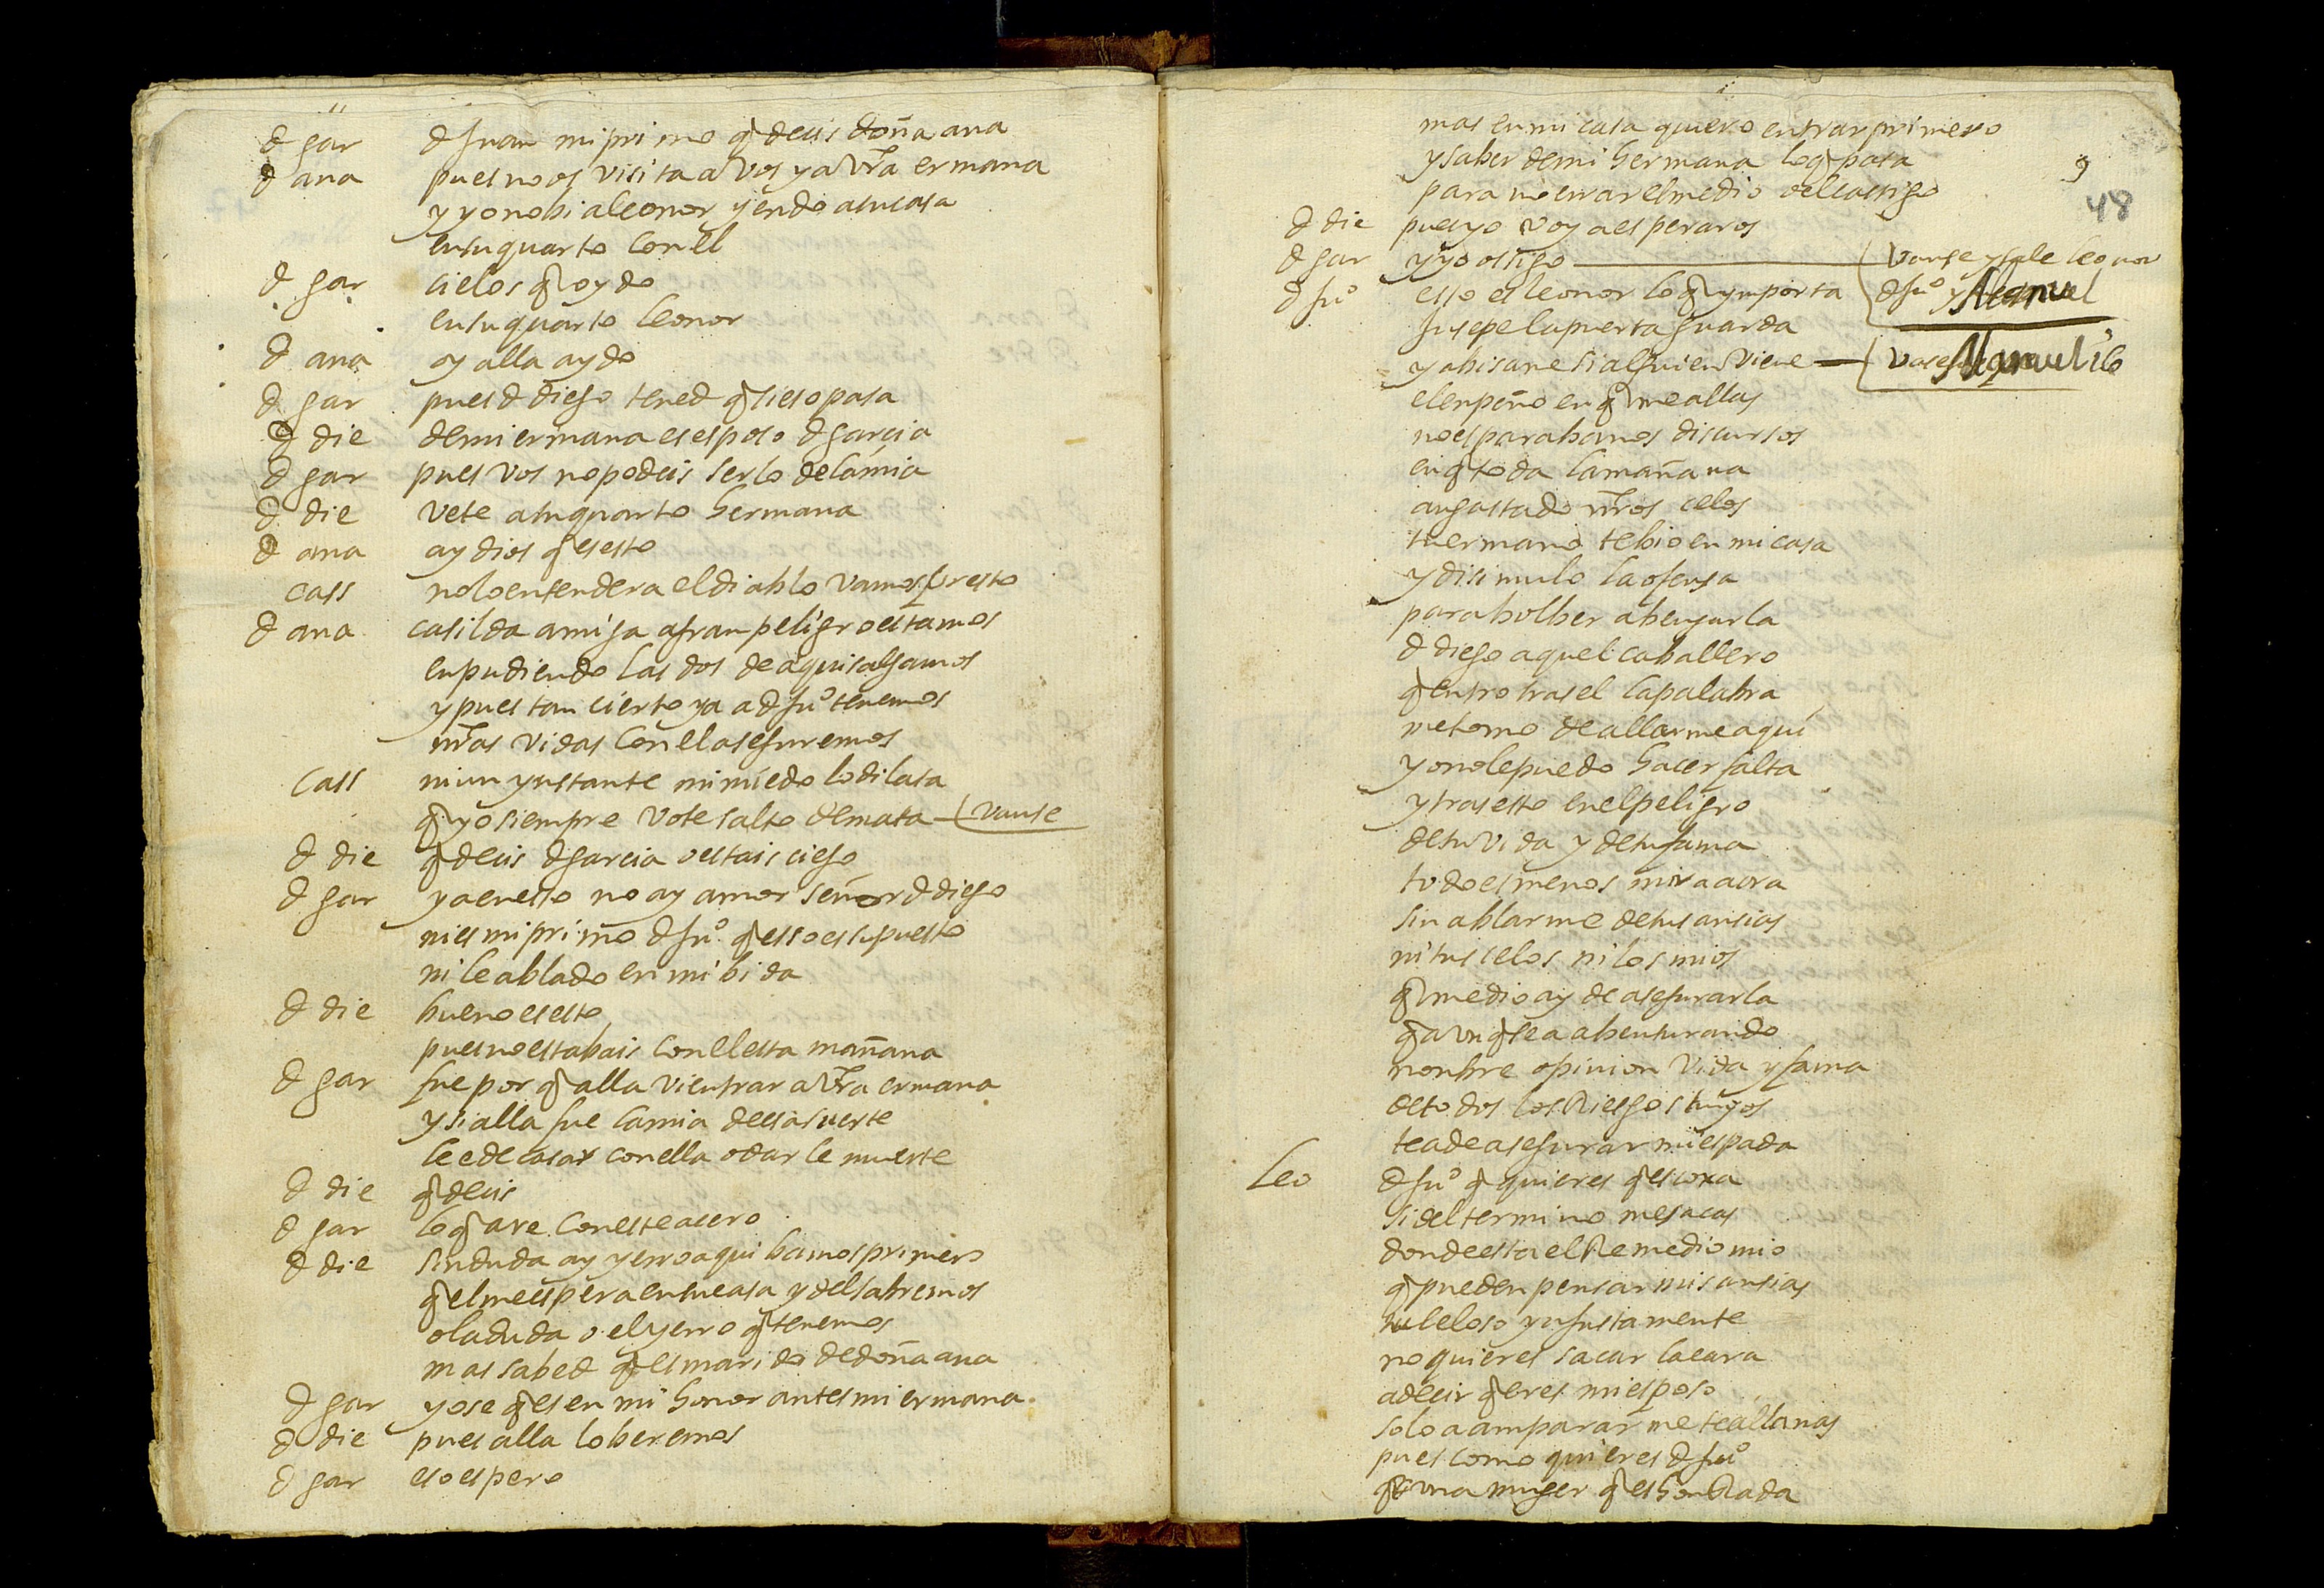 d gar d Juan mi primo q̃ decis doña ana
d ana pues no os visita a vos y a vr̃a ermana
y yo no bi a leonor yendo a su casa
en su quarto con el
d gar cielos q̃ oydo
en su quarto leonor
d ana oy alla a ydo
d gar pues d diego tened q̃ si eso pasa
d die de mi ermana es esposo d garcia
d gar pues vos no podeis serlo de la mia
d die vete a tu quarto hermana
d ana ay dios q̃ es esto
cass no lo entendera el diablo vamos presto
d ana casilda amiga a gran peligro estamos
en pudiendo las dos de aqui salgamos
y pues tan cierto ya a d Juº tenemos
nr̃as vidas con el aseguremos
Cass ni un ynstante mi miedo lo dilata
q̃ yo siempre vote salto de mata vanse
d die q̃ decis d garcia o estais ciego
d gar ya en esto no ay amor señor d diego
ni es mi primo d Juº q̃ esso es supuesto
ni le ablado en mi bida
d die bueno es esto
pues no estabais con el esta mañana
d gar fue por q̃ alla vi entrar a vr̃a ermana
y si alla fue la mia desa suerte
le e de casar con ella o darle muerte
d die q̃ decis
d gar lo q̃ are con este acero
d die sin duda ay yerro aqui bamos primero
q̃ el me espera en tu casa y del sabremos
o la duda o el yerro q̃ tenemos
mas sabed q̃ es marido de doña ana
d gar yo se q̃ es en mi honor antes mi ermana
d die pues alla lo beremos
d gar eso espero
mas en mi casa quiero entrar primero
y saber de mi hermana lo q̃ pasa
9
para no errar el medio del castigo
48
d die pues yo voy a esperaros
d gar y yo os sigo vanse y sale leonor
d Juº esso es leonor lo q̃ ymporta d Juº y Manuel
Jusepe la puerta guarda
y abisame si alguien viene vase Manuelilo
el enpeño en q̃ me allas
no es para banos discursos
en q̃ toda la mañana
an gastado nr̃os celos
tu ermano te bio en mi casa
y disimulo la ofensa
para bolber a bengarla
d diego aquel caballero
q̃ entro tras el la palabra
me tomo de allarme aqui
yo no le puedo hacer falta
y tras esto en el peligro
de tu vida y de tu fama
todo es menos mira aora
sin ablarme de tus ansias
ni tus celos ni los mios
q̃ medio ay de asegurarla
q̃ aun q̃ sea abenturando
nonbre opinion vida y fama
de todos los Riesgos tuyos
te a de asegurar mi espada
Leo d Juº q̃ quieres q̃ escoxa
si del termino me sacas
donde esta el Remedio mio
q̃ pueden pensar mis ansias
tu celoso ynjustamente
no quieres sacar la cara
a decir q̃ eres mi esposo
solo a ampararme te allanas
pues como quieres d Juº
q̃ una muger q̃ es honRada